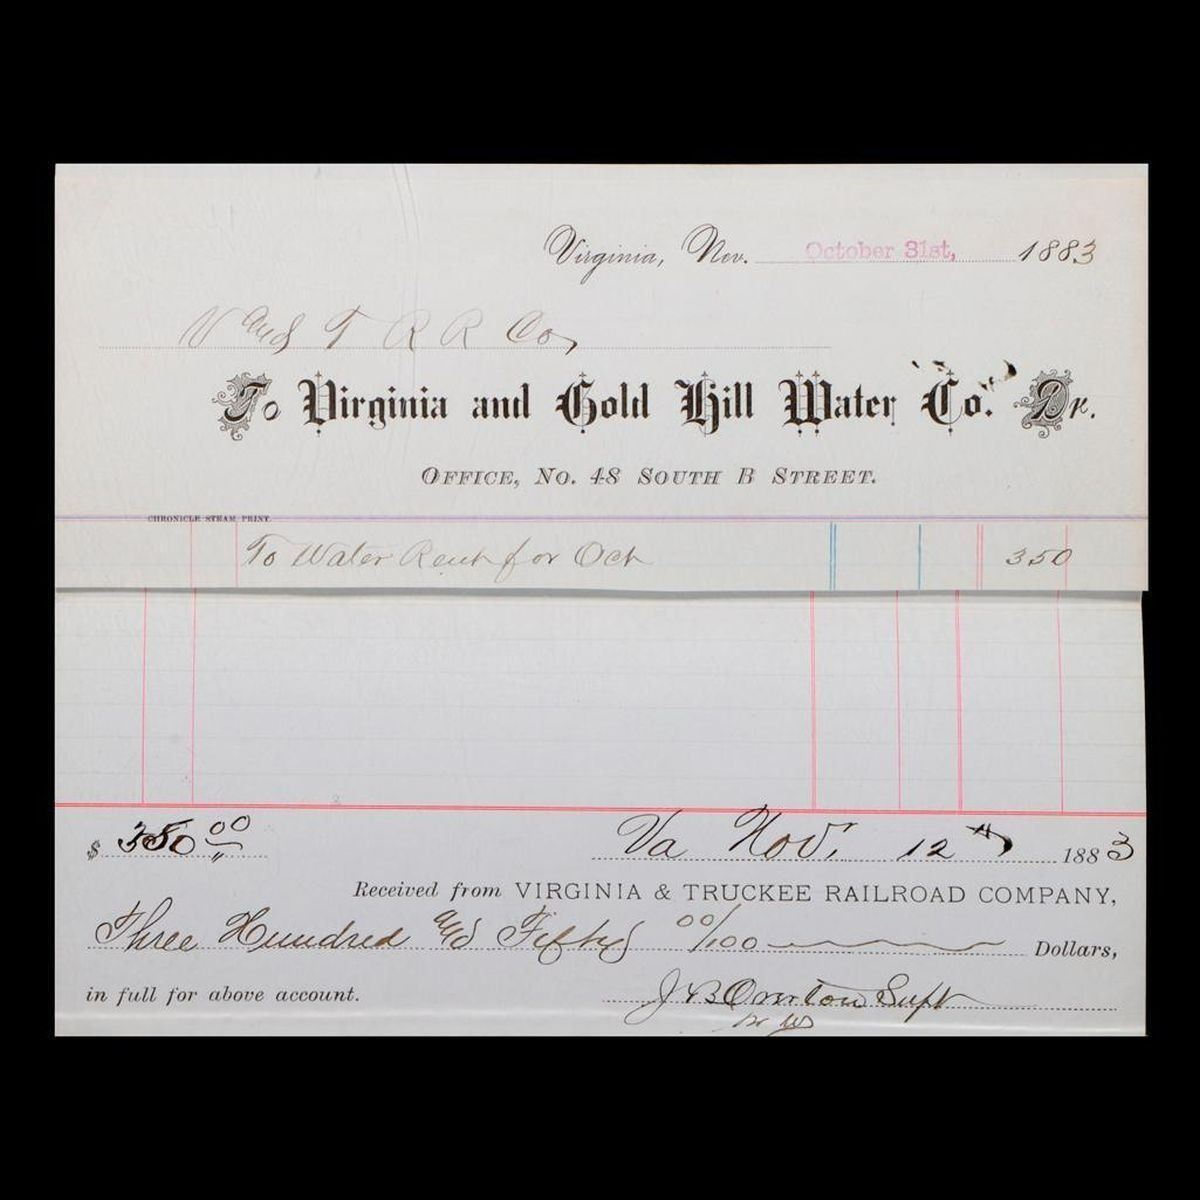 Virginia, Nev. October 31st, 1883
V and T R R Co,
To Virginia and Gold Hill Water Co. Dr.
OFFICE, NO. 48 SOUTH B STREET.
CHRONICLE STEAM PRINT.
To Water Rent for Oct 350
$ 350 00 Va Nov. 12th 1883
Received from VIRGINIA & TRUCKEE RAILROAD COMPANY,
Three Hundred and Fifty 00/100 Dollars,
in full for above account. J B Overton Supt